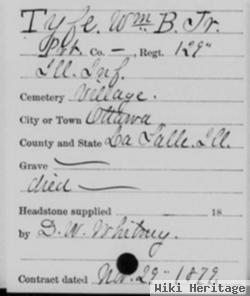 Tyfe, Wm B. Jr.
Pvt. Co. —, Regt. 129"
Ill. Inf.
Cemetery Village.
City or Town Ottawa
County and State La Salle. Ill.
Grave —
died —
Headstone supplied 18
by D. W. Whitney.
Contract dated Nov. 29" 1879.
Wiki Heritage